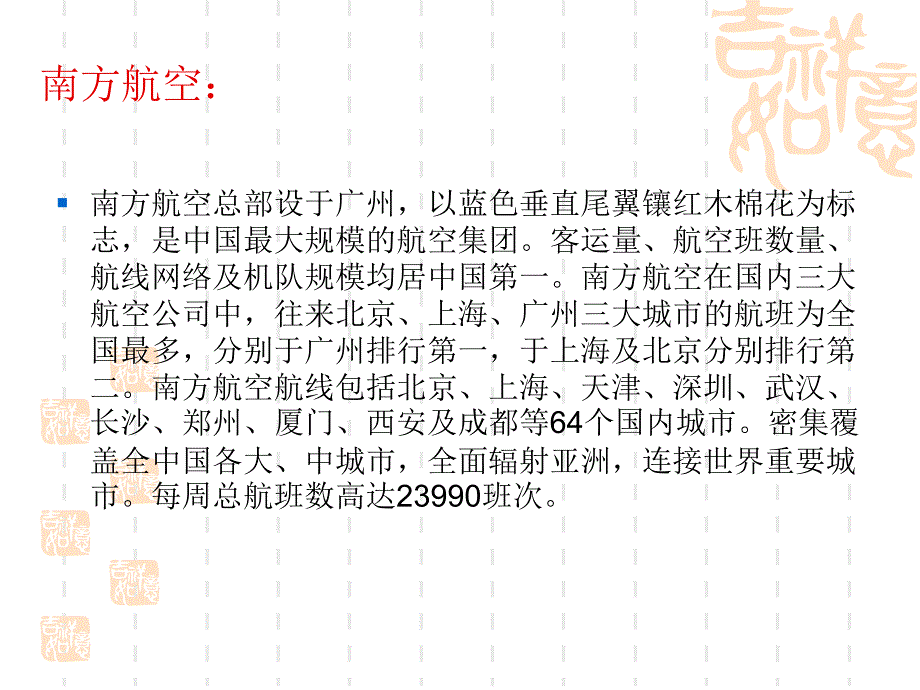 吉祥如意
南方航空：
南方航空总部设于广州，以蓝色垂直尾翼镶红木棉花为标
志，是中国最大规模的航空集团。客运量、航空班数量、
航线网络及机队规模均居中国第一。南方航空在国内三大
航空公司中，往来北京、上海、广州三大城市的航班为全
国最多，分别于广州排行第一，于上海及北京分别排行第
二。南方航空航线包括北京、上海、天津、深圳、武汉、
长沙、郑州、厦门、西安及成都等64个国内城市。密集覆
盖全中国各大、中城市，全面辐射亚洲，连接世界重要城
市。每周总航班数高达23990班次。
吉祥如意
吉祥如意
吉祥如意
吉祥如意
吉祥如意
吉祥如意